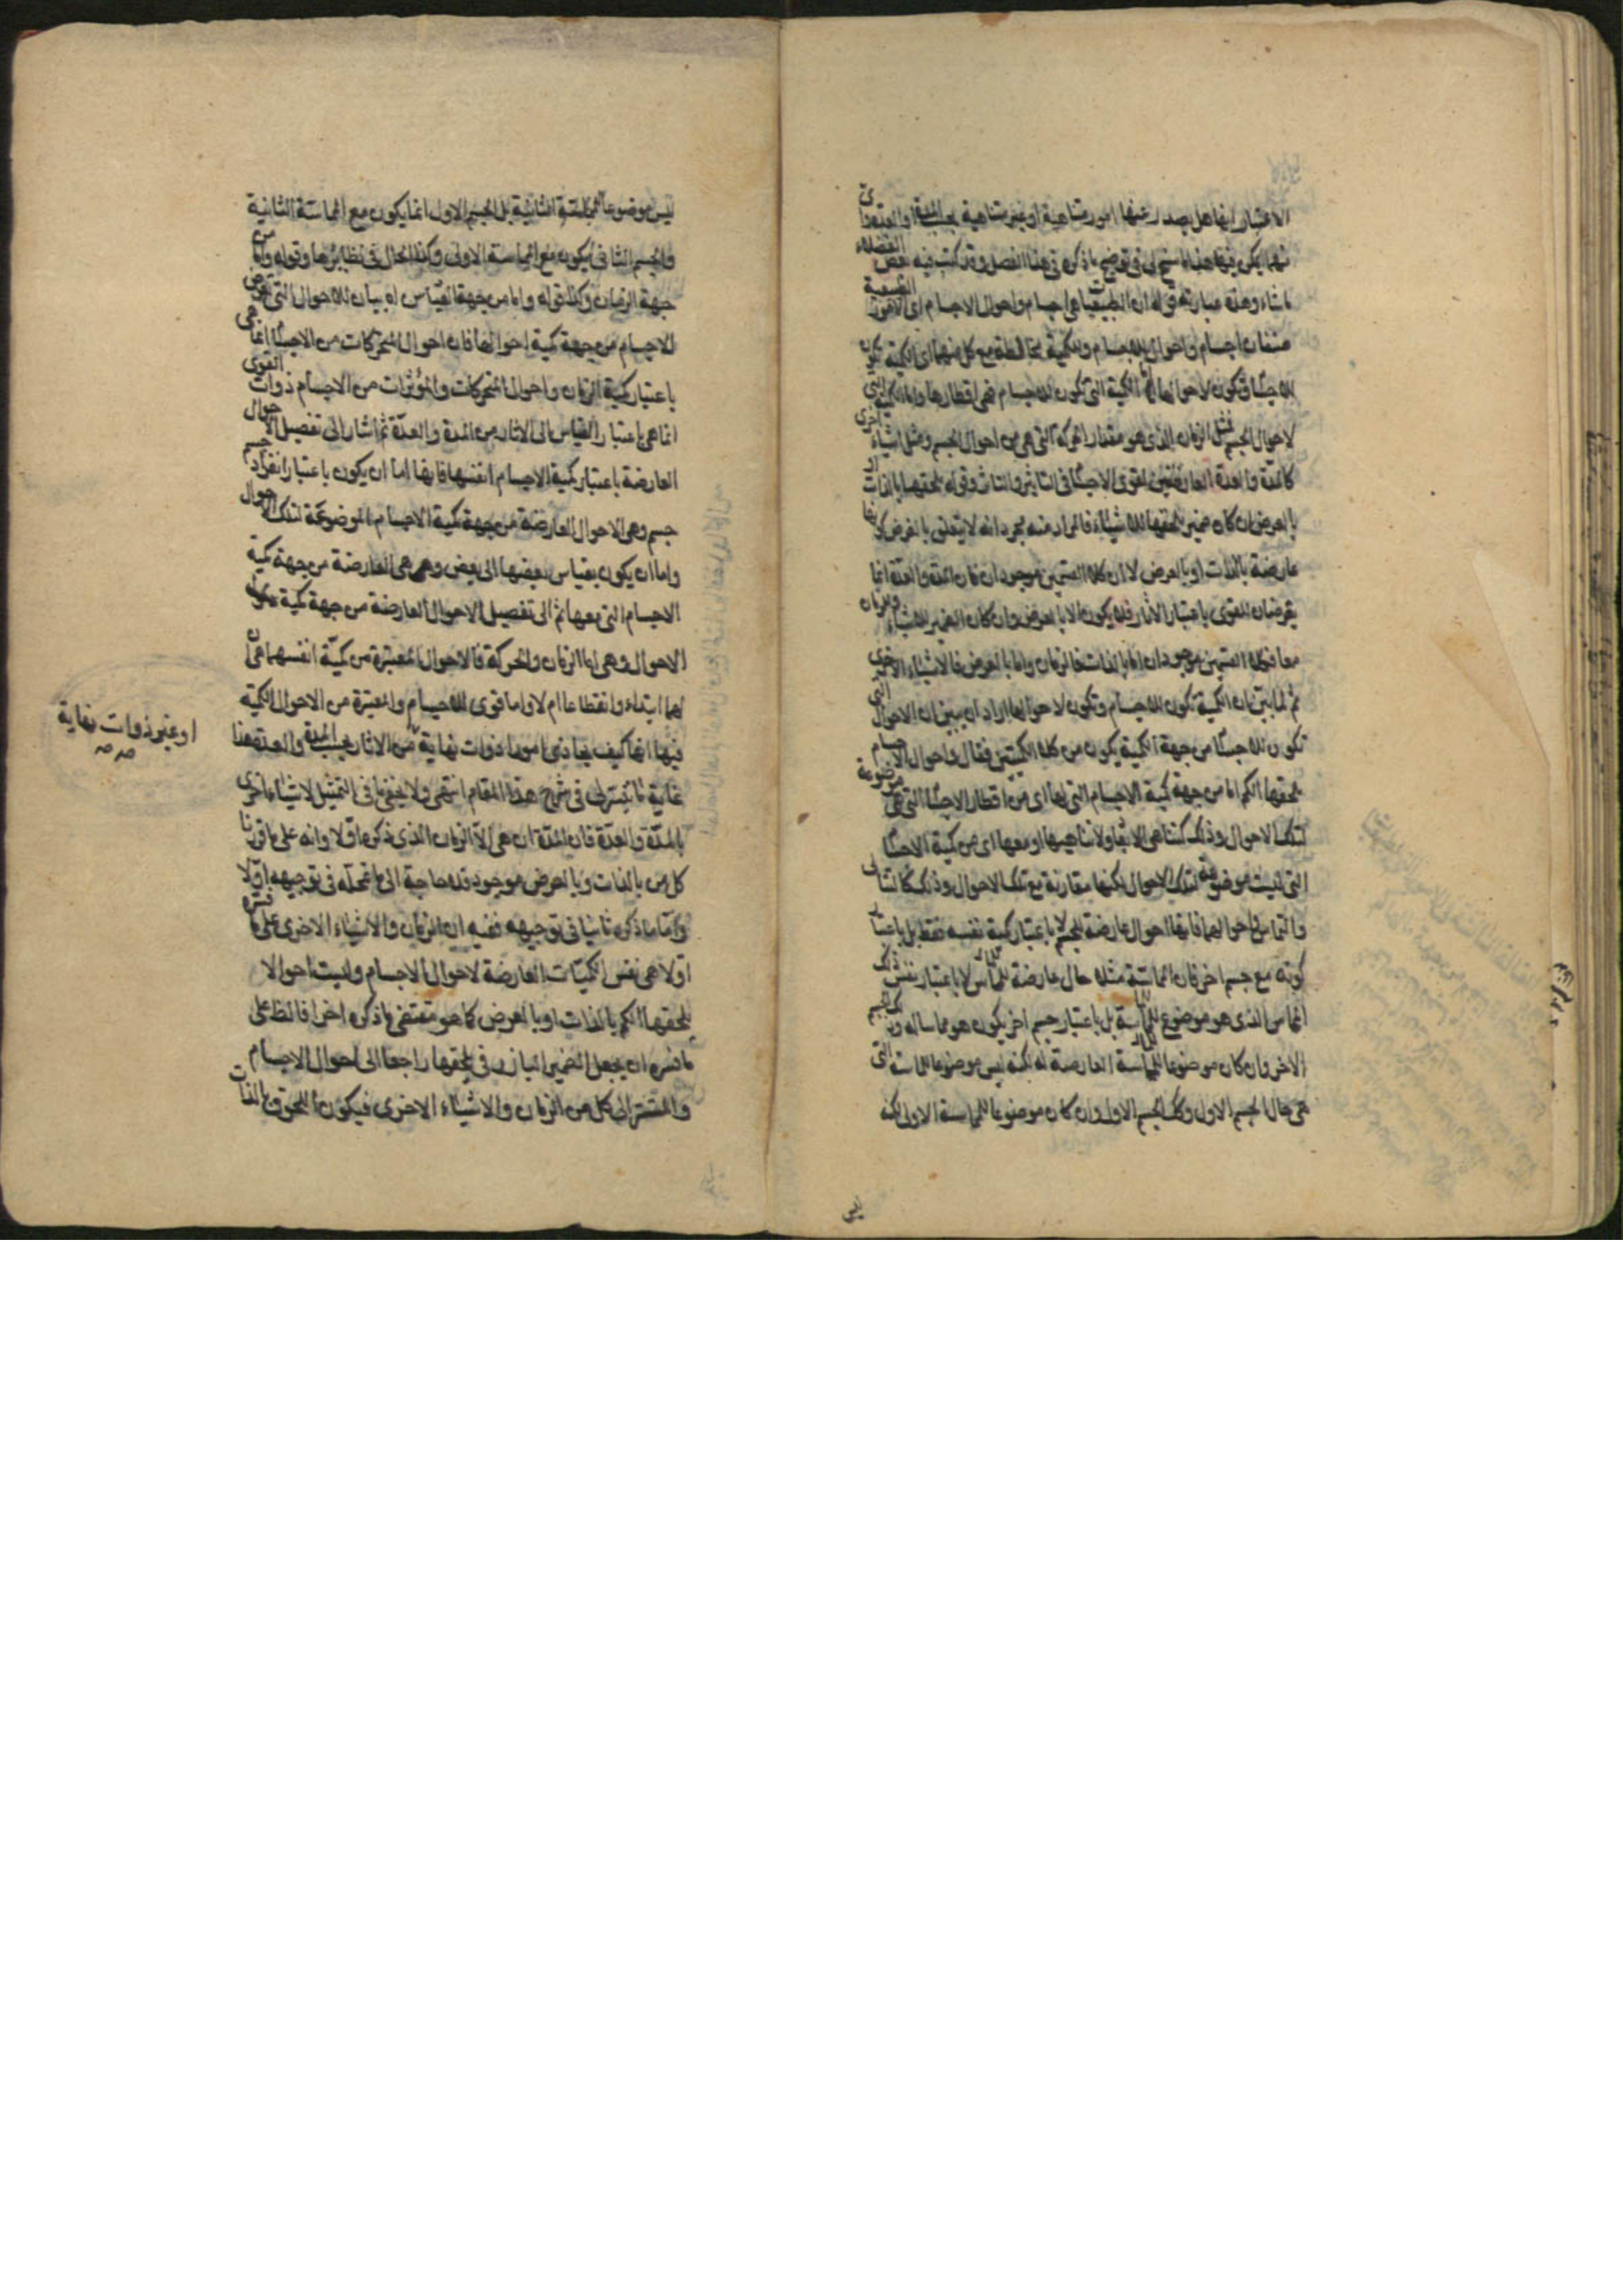 الاعتبار ايضا هل يصدر عنها امور متناهية او غير متناهية بحسب المدة او العدة
فهما يكن فيها هذا ما سنح لى فى توضيح ما ذكره فى هذا الفصل وقد كتب فيه بعض الفضلاء
ما شاء وهذه عبارته قوله ان الطبيعيات هى اجسام واحوال الاجسام اى الامور الطبيعية
صنفان اجسام واحوال للاجسام والكمية مخالطة مع كل منهما اى الكمية تكون
للاجسام وتكون لاحوالها اما الكمية التى تكون للاجسام فهى اقطارها واما الكمية التى
لاحوال الجسم فمثل الزمان الذى هو مقدار الحركة التى هى من احوال الجسم ومثل اشياء اخرى
كالمدة والعدة العارضتين لقوى الاجسام فى التاثير والتاثر وقوله يلحقها بالذات او
بالعرض ان كان ضمير يلحقها للاشياء فالمراد منه مجرد انه لا يتعلق بالغرض كونها
عارضة بالذات او بالعرض لا ان كلا القسمين موجودان فان المدة والعدة انما
يعرضان للقوى باعتبار الاثار فلا يكون الا بالعرض وان كان الضمير للاشياء والزمان
معا فكلا القسمين موجودان اما بالذات فالزمان واما بالعرض فالاشياء الاخرى
ثم لما بين ان الكمية تكون للاجسام وتكون لاحوالها اراد ان يبين ان الاحوال التى
تكون للاجسام من جهة الكمية يكون من كلا الكميتين فقال واحوال الاجسام
يلحقها الكم اما من جهة كمية الاجسام التى لها اى من اقطار الاجسام التى هى موضوعة
لتلك الاحوال وذلك كتناهى الابعاد ولا تناهيها او معها اى من كمية الاجسام
التى ليست موضوعة لتلك الاحوال لكنها مقارنة مع تلك الاحوال وذلك كالتتالى
والتماس واحوالهما فانها احوال عارضة للجسم لا باعتبار كمية نفسه فقط بل باعتبار
كونه مع جسم اخر فان المماسة مثلا حال عارضة للمماس لا باعتبار نفس ذلك
المماس الذى هو موضوع للمماسة بل باعتبار جسم اخر يكون هو مماسا له والجسم
الاخر وان كان موضوعا للمماسة العارضة له لكنه ليس موضوعا للمماسة التى
هى حال الجسم الاول وكذا الجسم الاول وان كان موضوعا للمماسة الاولى لكنه
ليس
ليس موضوعا للمماسة الثانية بل الجسم الاول انما يكون مع المماسة الثانية
والجسم الثانى يكون مع المماسة الاولى وكذا الحال فى نظائرها وقوله واما من
جهة الزمان وكذا قوله واما من جهة القياس اه بيان للاحوال التى تعرض
للاجسام من جهة كمية احوالها فان احوال المتحركات من الاجسام انما هى
باعتبار كمية الزمان واحوال المتحركات والمؤثرات من الاجسام ذوات القوى
انما هى باعتبار القياس الى الاثار من المدة والعدة ثم اشار الى تفصيل الاحوال
العارضة باعتبار كمية الاجسام انفسها فانها اما ان يكون باعتبار انفراد جسم
جسم وهى الاحوال العارضة من جهة كمية الاجسام الموضوعة لتلك الاحوال
واما ان يكون بقياس بعضها الى بعض وهى هى العارضة من جهة كمية
الاجسام التى معها ثم الى تفصيل الاحوال العارضة من جهة كمية
الاحوال وهى اما الزمان والحركة فالاحوال المعتبرة من كمية انفسهما هى ان
لهما ابتداء وانقطاعا ام لا واما قوى الاجسام والمعتبرة من الاحوال الكمية
فيها انها كيف يحاذى امورا ذوات نهاية من الاثار بحسب المدة والعدة هذا
غاية ما تيسر لى فى شرح هذا المقام انتهى ولا يخفى ما فى التمثيل لاشياء اخرى
بالمدة والعدة فان المدة ان هى الا الزمان الذى ذكره اولا وانه على ما قررنا
كل من بالذات وبالعرض موجود فلا حاجة الى ما تمحله فى توجيهه اولا
واما ما ذكره ثانيا فى توجيهه ففيه ان الزمان والاشياء الاخرى على ما فسره
اولا هى نفس الكميات العارضة لاحوال الاجسام وليست احوالا
يلحقها الكم بالذات او بالعرض كما هو مقتضى ما ذكره اخرا فالظ على
ما فسره ان يجعل الضمير البارز فى يلحقها راجعا الى احوال الاجسام
والمستتر الى كل من الزمان والاشياء الاخرى فيكون اللحوق بالذات
او غير ذوات نهاية
صح صح